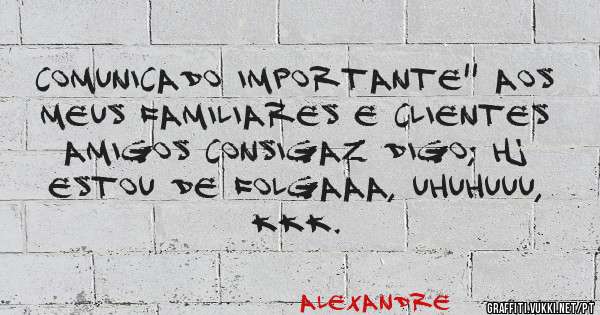 COMUNICADO IMPORTANTE" AOS
MEUS FAMILIARES E CLIENTES
AMIGOS CONSIGAZ DIGO; Hj
ESTOU DE FOLGAAA, UHUHUUU,
KKK.
ALEXANDRE
GRAFFITI.VUKKI.NET/PT